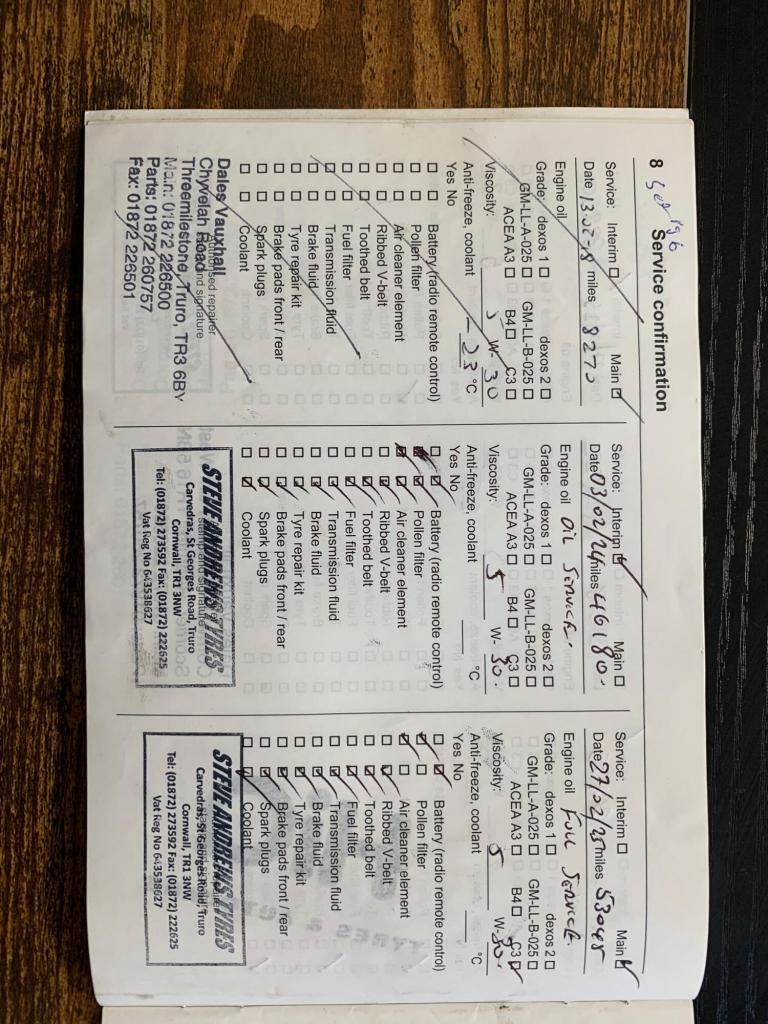 8 Service confirmation
Service: Interim Main
Date 13.02-18 miles 18270
Engine oil
Grade: dexos 1 dexos 2
GM-LL-A-025 GM-LL-B-025
ACEA A3 B4 C3
Viscosity: 5 W-30
Anti-freeze, coolant -23 °C
Yes No
Battery (radio remote control)
Pollen filter
Air cleaner element
Ribbed V-belt
Toothed belt
Fuel filter
Transmission fluid
Brake fluid
Tyre repair kit
Brake pads front / rear
Spark plugs
Coolant
Dales Vauxhall
Chyvelah Road
Threemilestone, Truro, TR3 6BY
Main: 01872 226500
Parts: 01872 260757
Fax: 01872 226501
Service: Interim Main
Date 03/02/24 miles 46180.
Engine oil OIL SERVICE.
Grade: dexos 1 dexos 2
GM-LL-A-025 GM-LL-B-025
ACEA A3 B4 C3
Viscosity: 5 W-30.
Anti-freeze, coolant °C
Yes No
Battery (radio remote control)
Pollen filter
Air cleaner element
Ribbed V-belt
Toothed belt
Fuel filter
Transmission fluid
Brake fluid
Tyre repair kit
Brake pads front / rear
Spark plugs
Coolant
Stamp and signature
STEVE ANDREWS TYRES
Carvedras, St Georges Road, Truro
Cornwall, TR1 3NW
Tel: (01872) 273592 Fax: (01872) 222625
Vat Reg No 643538627
Service: Interim Main
Date 27/02/25 miles 53045
Engine oil FULL SERVICE.
Grade: dexos 1 dexos 2
GM-LL-A-025 GM-LL-B-025
ACEA A3 B4 C3
Viscosity: 5 W-30.
Anti-freeze, coolant °C
Yes No
Battery (radio remote control)
Pollen filter
Air cleaner element
Ribbed V-belt
Toothed belt
Fuel filter
Transmission fluid
Brake fluid
Tyre repair kit
Brake pads front / rear
Spark plugs
Coolant
STEVE ANDREWS TYRES
Carvedras, St Georges Road, Truro
Cornwall, TR1 3NW
Tel: (01872) 273592 Fax: (01872) 222625
Vat Reg No 643538627